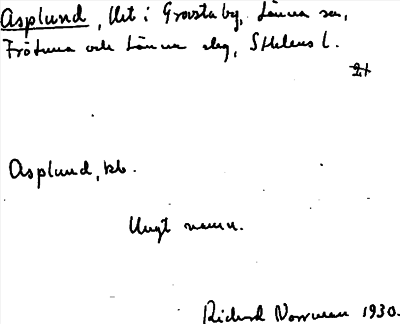 Asplund, lht i Grovsta by, Länna sn,
Frötuna och Länna skg, Sthlms l.
21
Asplund, bb.
Ungt namn.
Richard Norrman 1930.